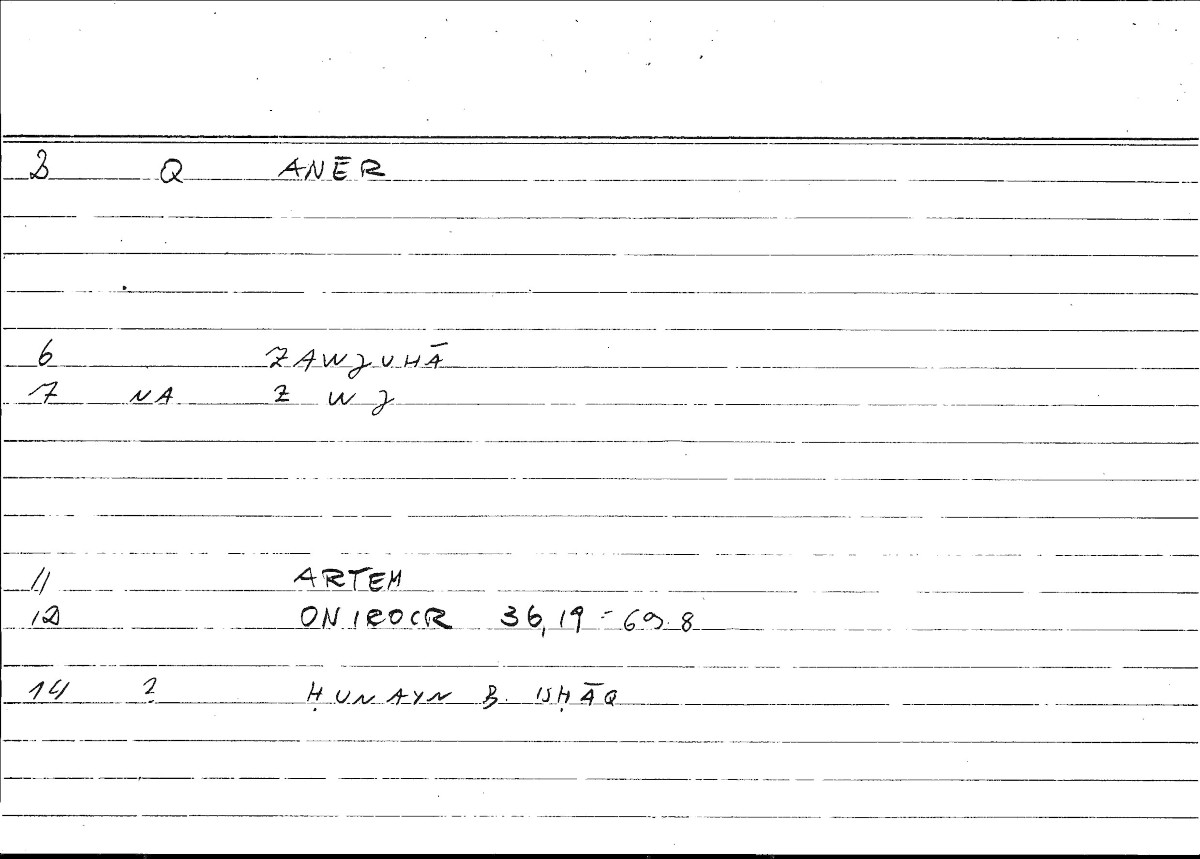 2 Q ANĒR
6 ZAWJUHĀ
7 NA Z W J
11 ARTEM
12 ONIROCR 36,19 = 69.8
14 2 ḤUNAYN B. ISḤĀQ